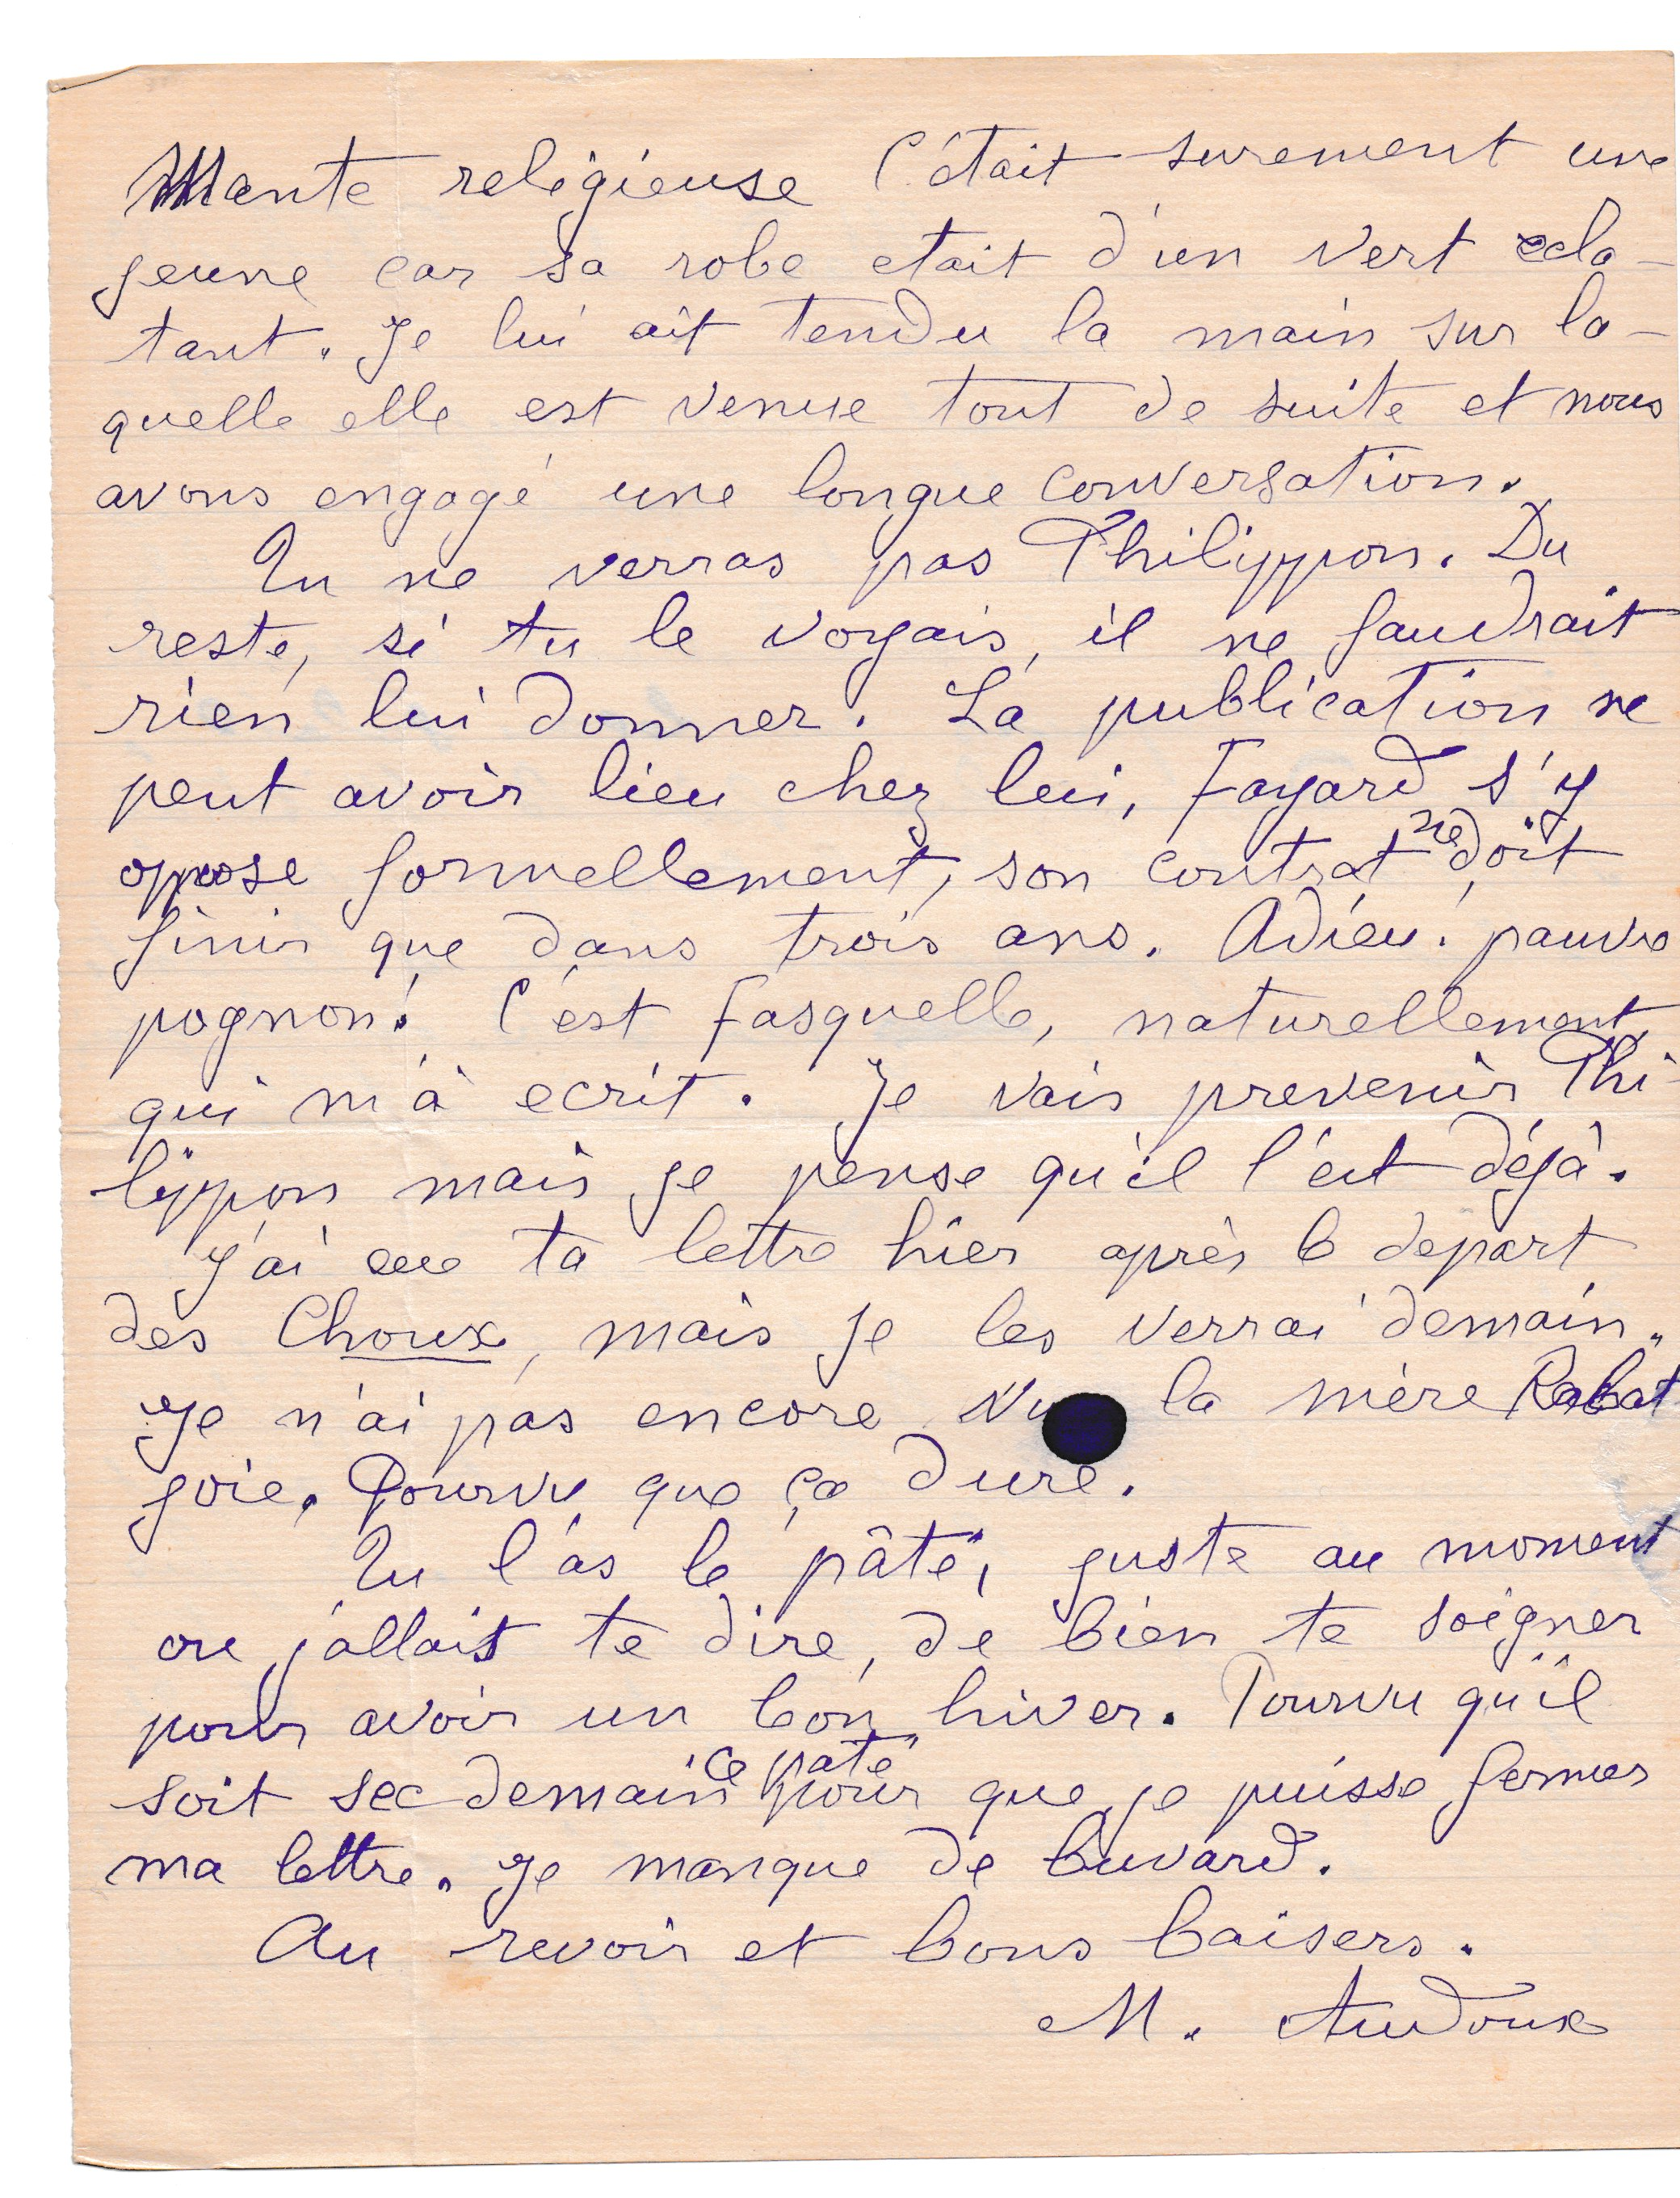 Mante religieuse C'était surement une
jeune car sa robe etait d'un vert ecla-
tant. Je lui ait tendu la main sur la-
quelle elle est venue tout de suite et nous
avons engagé une longue conversation.
Tu ne verras pas Philippon. Du
reste, si tu le voyais, il ne faudrait
rien lui donner. La publication ne
peut avoir lieu chez lui, Fayard s'y
oppose formellement, son contrat ne doit
finir que dans trois ans. Adieu! pauvre
pognon! C'est Fasquelle, naturellement,
qui m'à ecrit. Je vais prevenir Phi-
lippon mais je pense qu'il l'est déjà.
J'ai eue ta lettre hier après le depart
des Choux, mais je les verrai demain.
Je n'ai pas encore vu la mère Rabat
joie. Pourvu que ça dure.
Tu l'as le pâté, juste au moment
ou j'allais te dire, de bien te soigner
pour avoir un bon hiver. Pourvu qu'il
soit sec demain ce paté pour que je puisse fermer
ma lettre. Je manque de buvard.
Au revoir et bons baisers.
M. Audoux